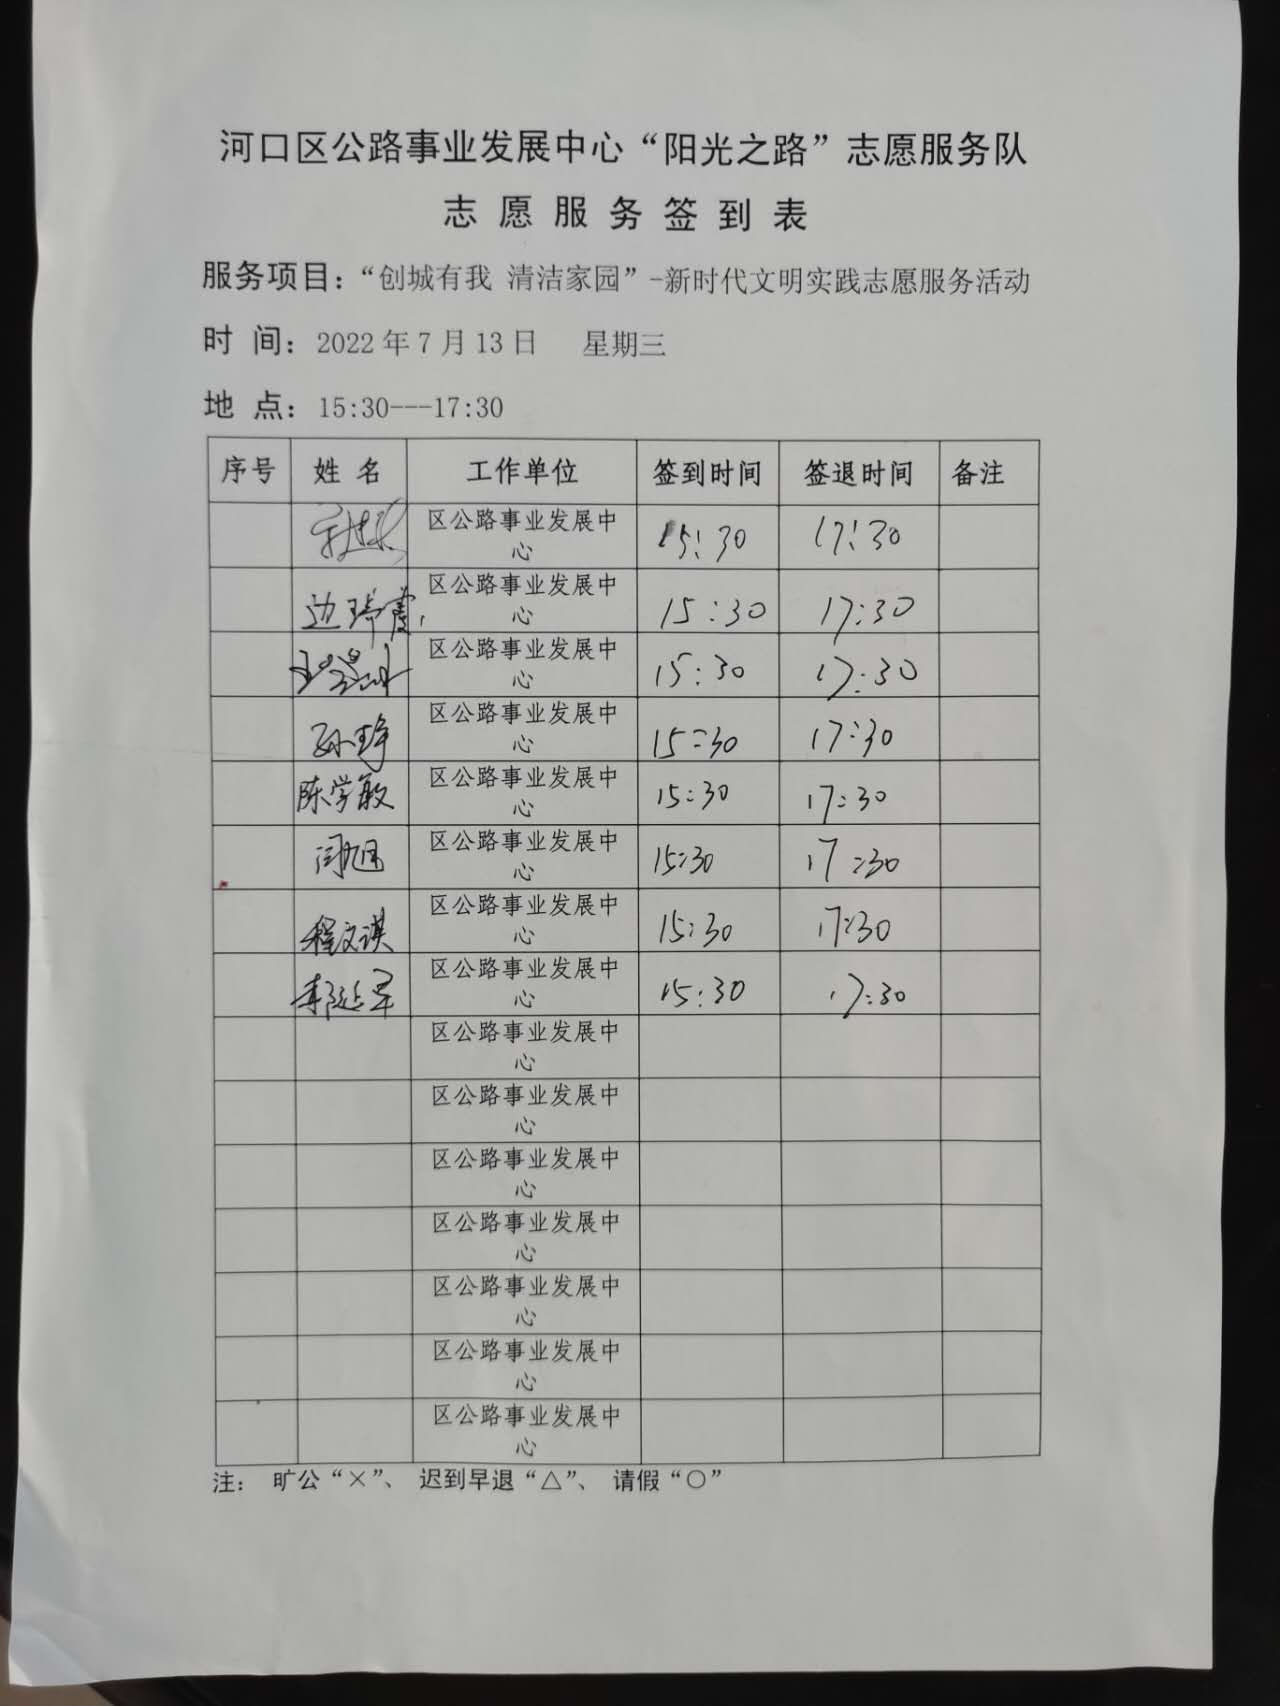 河口区公路事业发展中心“阳光之路”志愿服务队
志愿服务签到表
服务项目：“创城有我 清洁家园”-新时代文明实践志愿服务活动
时 间：2022年7月13日 星期三
地 点：15:30---17:30
序号 姓名 工作单位 签到时间 签退时间 备注
区公路事业发展中 15:30 17:30
心
边瑞霞 区公路事业发展中 15:30 17:30
心
区公路事业发展中 15:30 17:30
心
孙静 区公路事业发展中 15:30 17:30
心
陈学敏 区公路事业发展中 15:30 17:30
心
闫旭 区公路事业发展中 15:30 17:30
心
程文祺 区公路事业发展中 15:30 17:30
心
区公路事业发展中 15:30 17:30
心
区公路事业发展中
心
区公路事业发展中
心
区公路事业发展中
心
区公路事业发展中
心
区公路事业发展中
心
区公路事业发展中
心
区公路事业发展中
心
注： 旷公“×”、 迟到早退“△”、 请假“○”